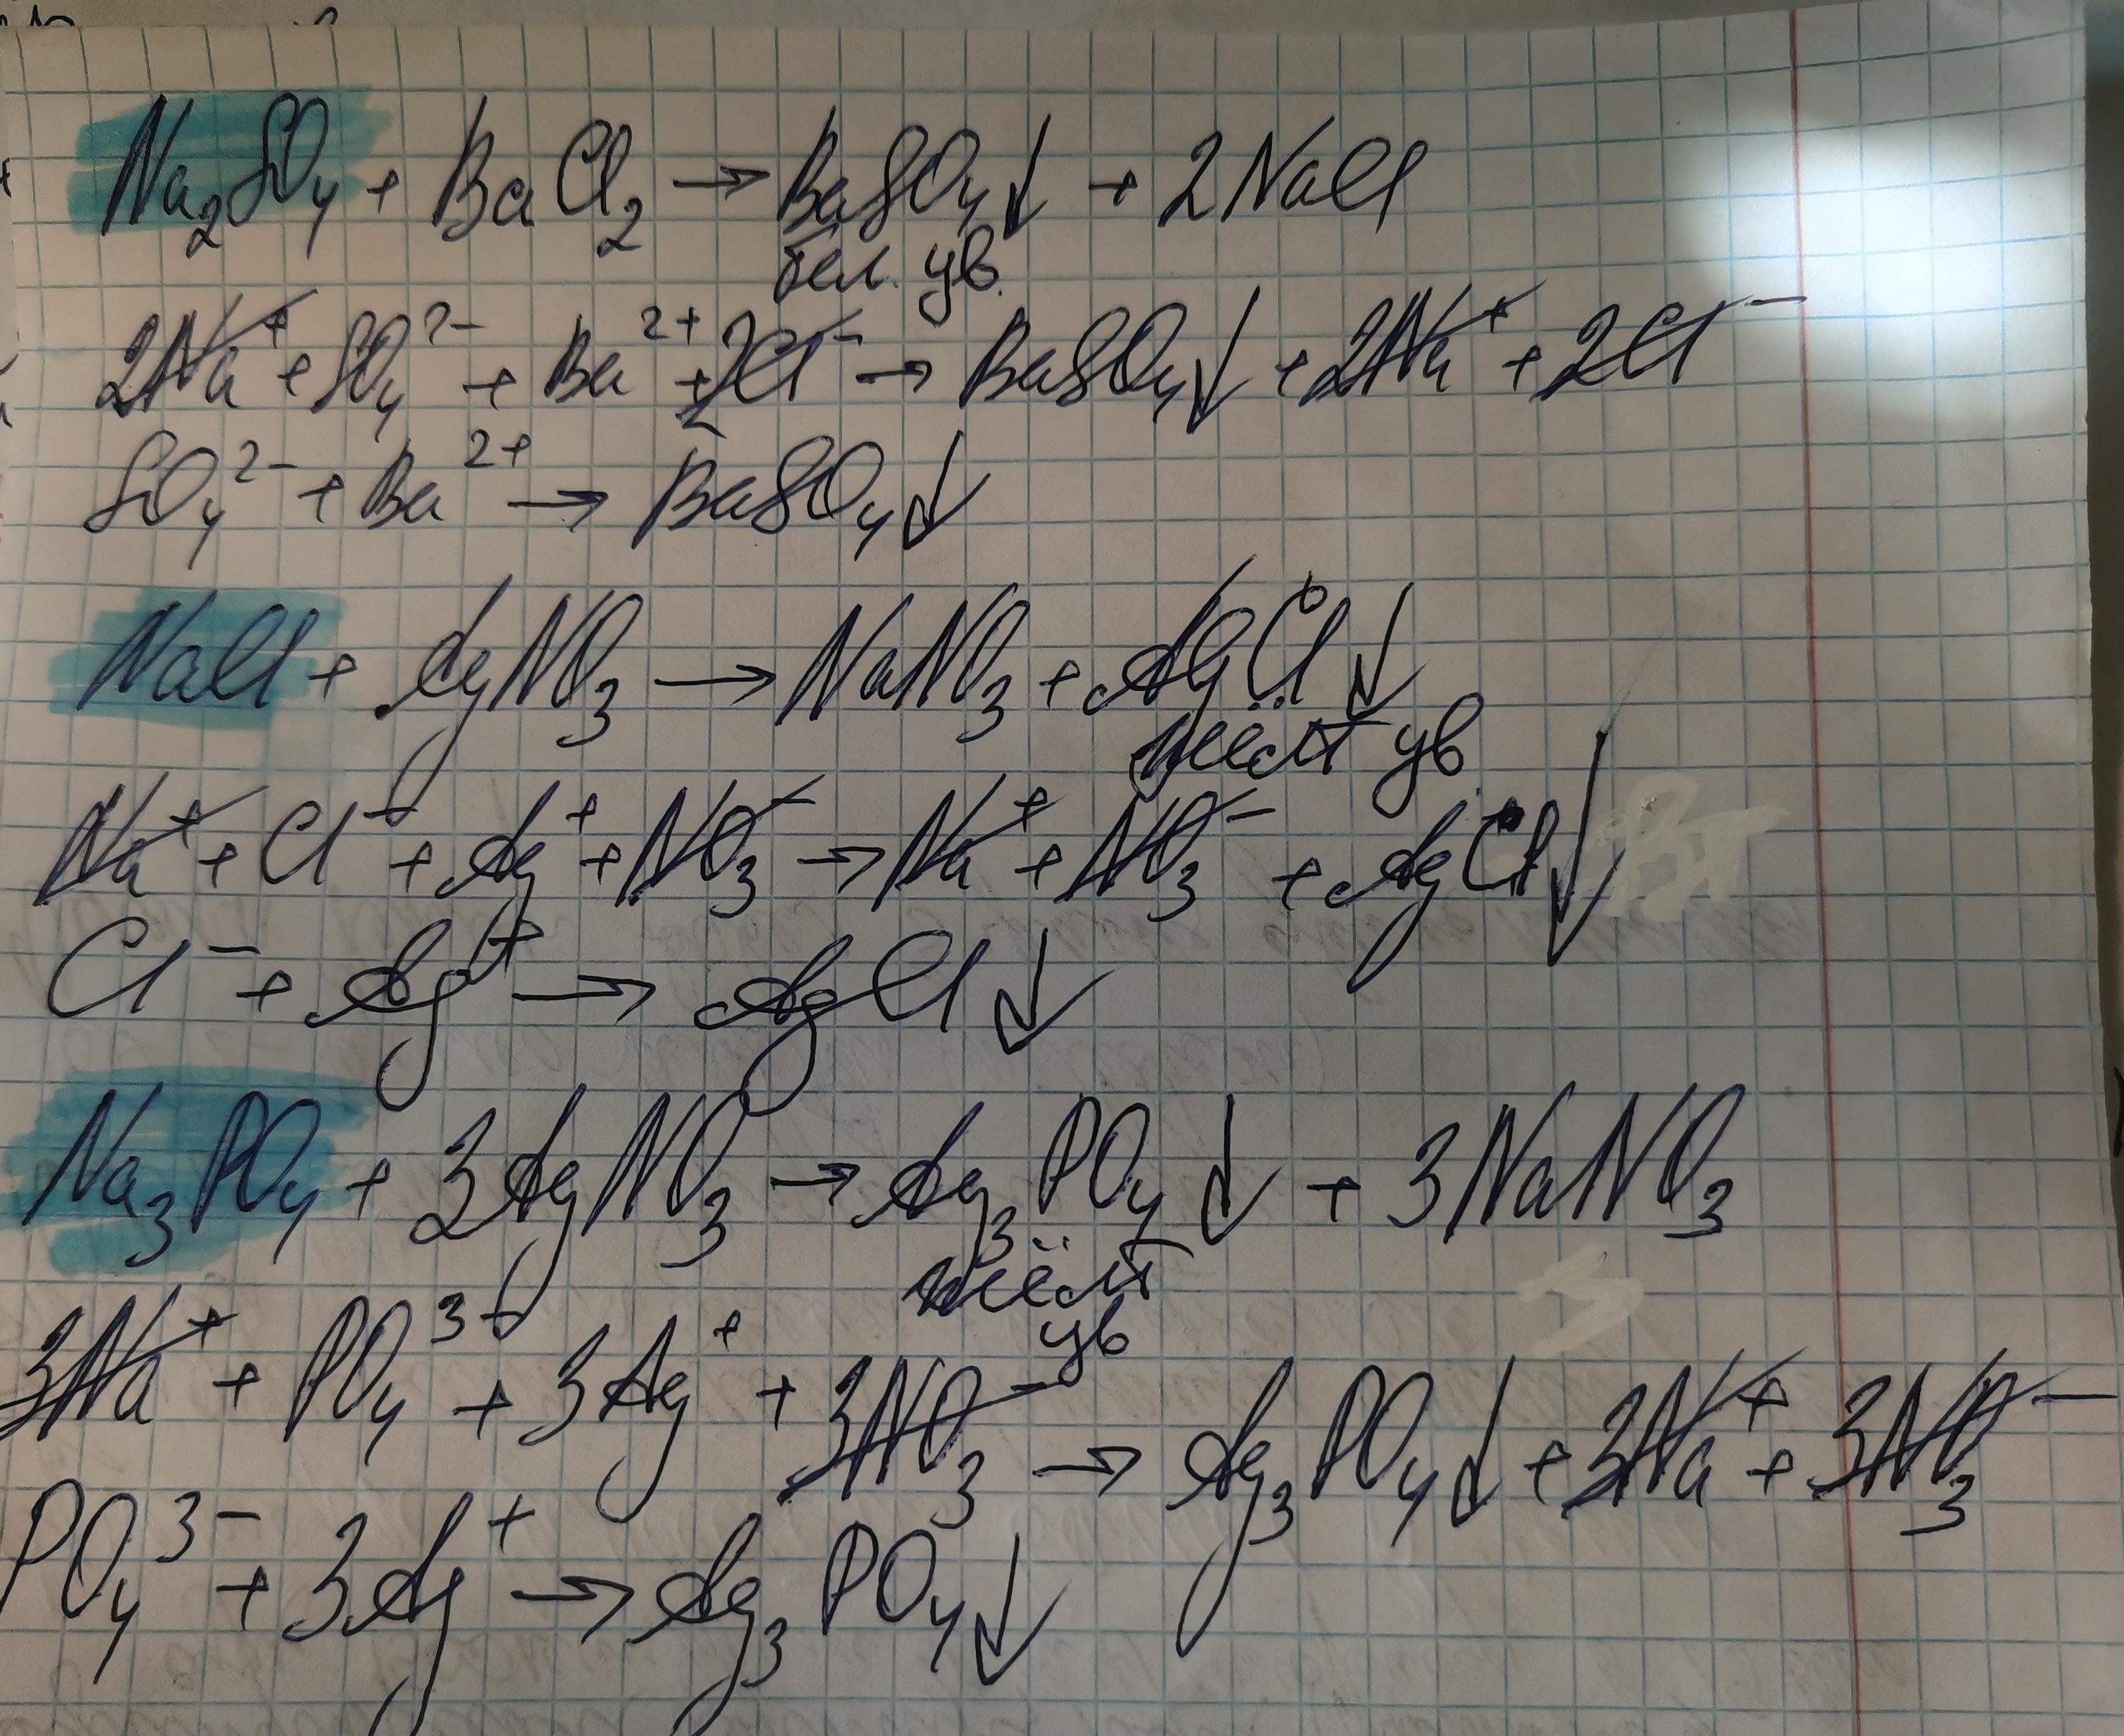 Na₂SO₄ + BaCl₂ → BaSO₄↓ + 2NaCl
бел. цв.
2Na⁺ + SO₄²⁻ + Ba²⁺ + 2Cl⁻ → BaSO₄↓ + 2Na⁺ + 2Cl⁻
SO₄²⁻ + Ba²⁺ → BaSO₄↓
NaCl + AgNO₃ → NaNO₃ + AgCl↓
жёлт цв.
Na⁺ + Cl⁻ + Ag⁺ + NO₃⁻ → Na⁺ + NO₃⁻ + AgCl↓
Cl⁻ + Ag⁺ → AgCl↓
Na₃PO₄ + 3AgNO₃ → Ag₃PO₄↓ + 3NaNO₃
жёлт
цв
3Na⁺ + PO₄³⁻ + 3Ag⁺ + 3NO₃⁻ → Ag₃PO₄↓ + 3Na⁺ + 3NO₃⁻
PO₄³⁻ + 3Ag⁺ → Ag₃PO₄↓